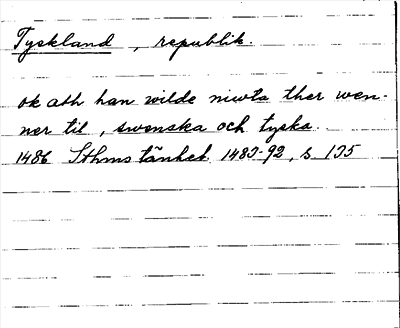 Tyskland, republik.
ok ath han wilde niwta ther wen-
ner til, swenska och tyska.
1486 Sthms tänkeb 1483-92, s 135